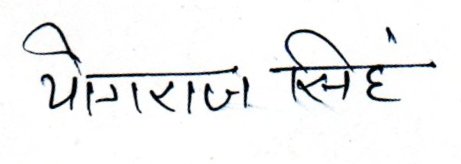 योगराज सिहं